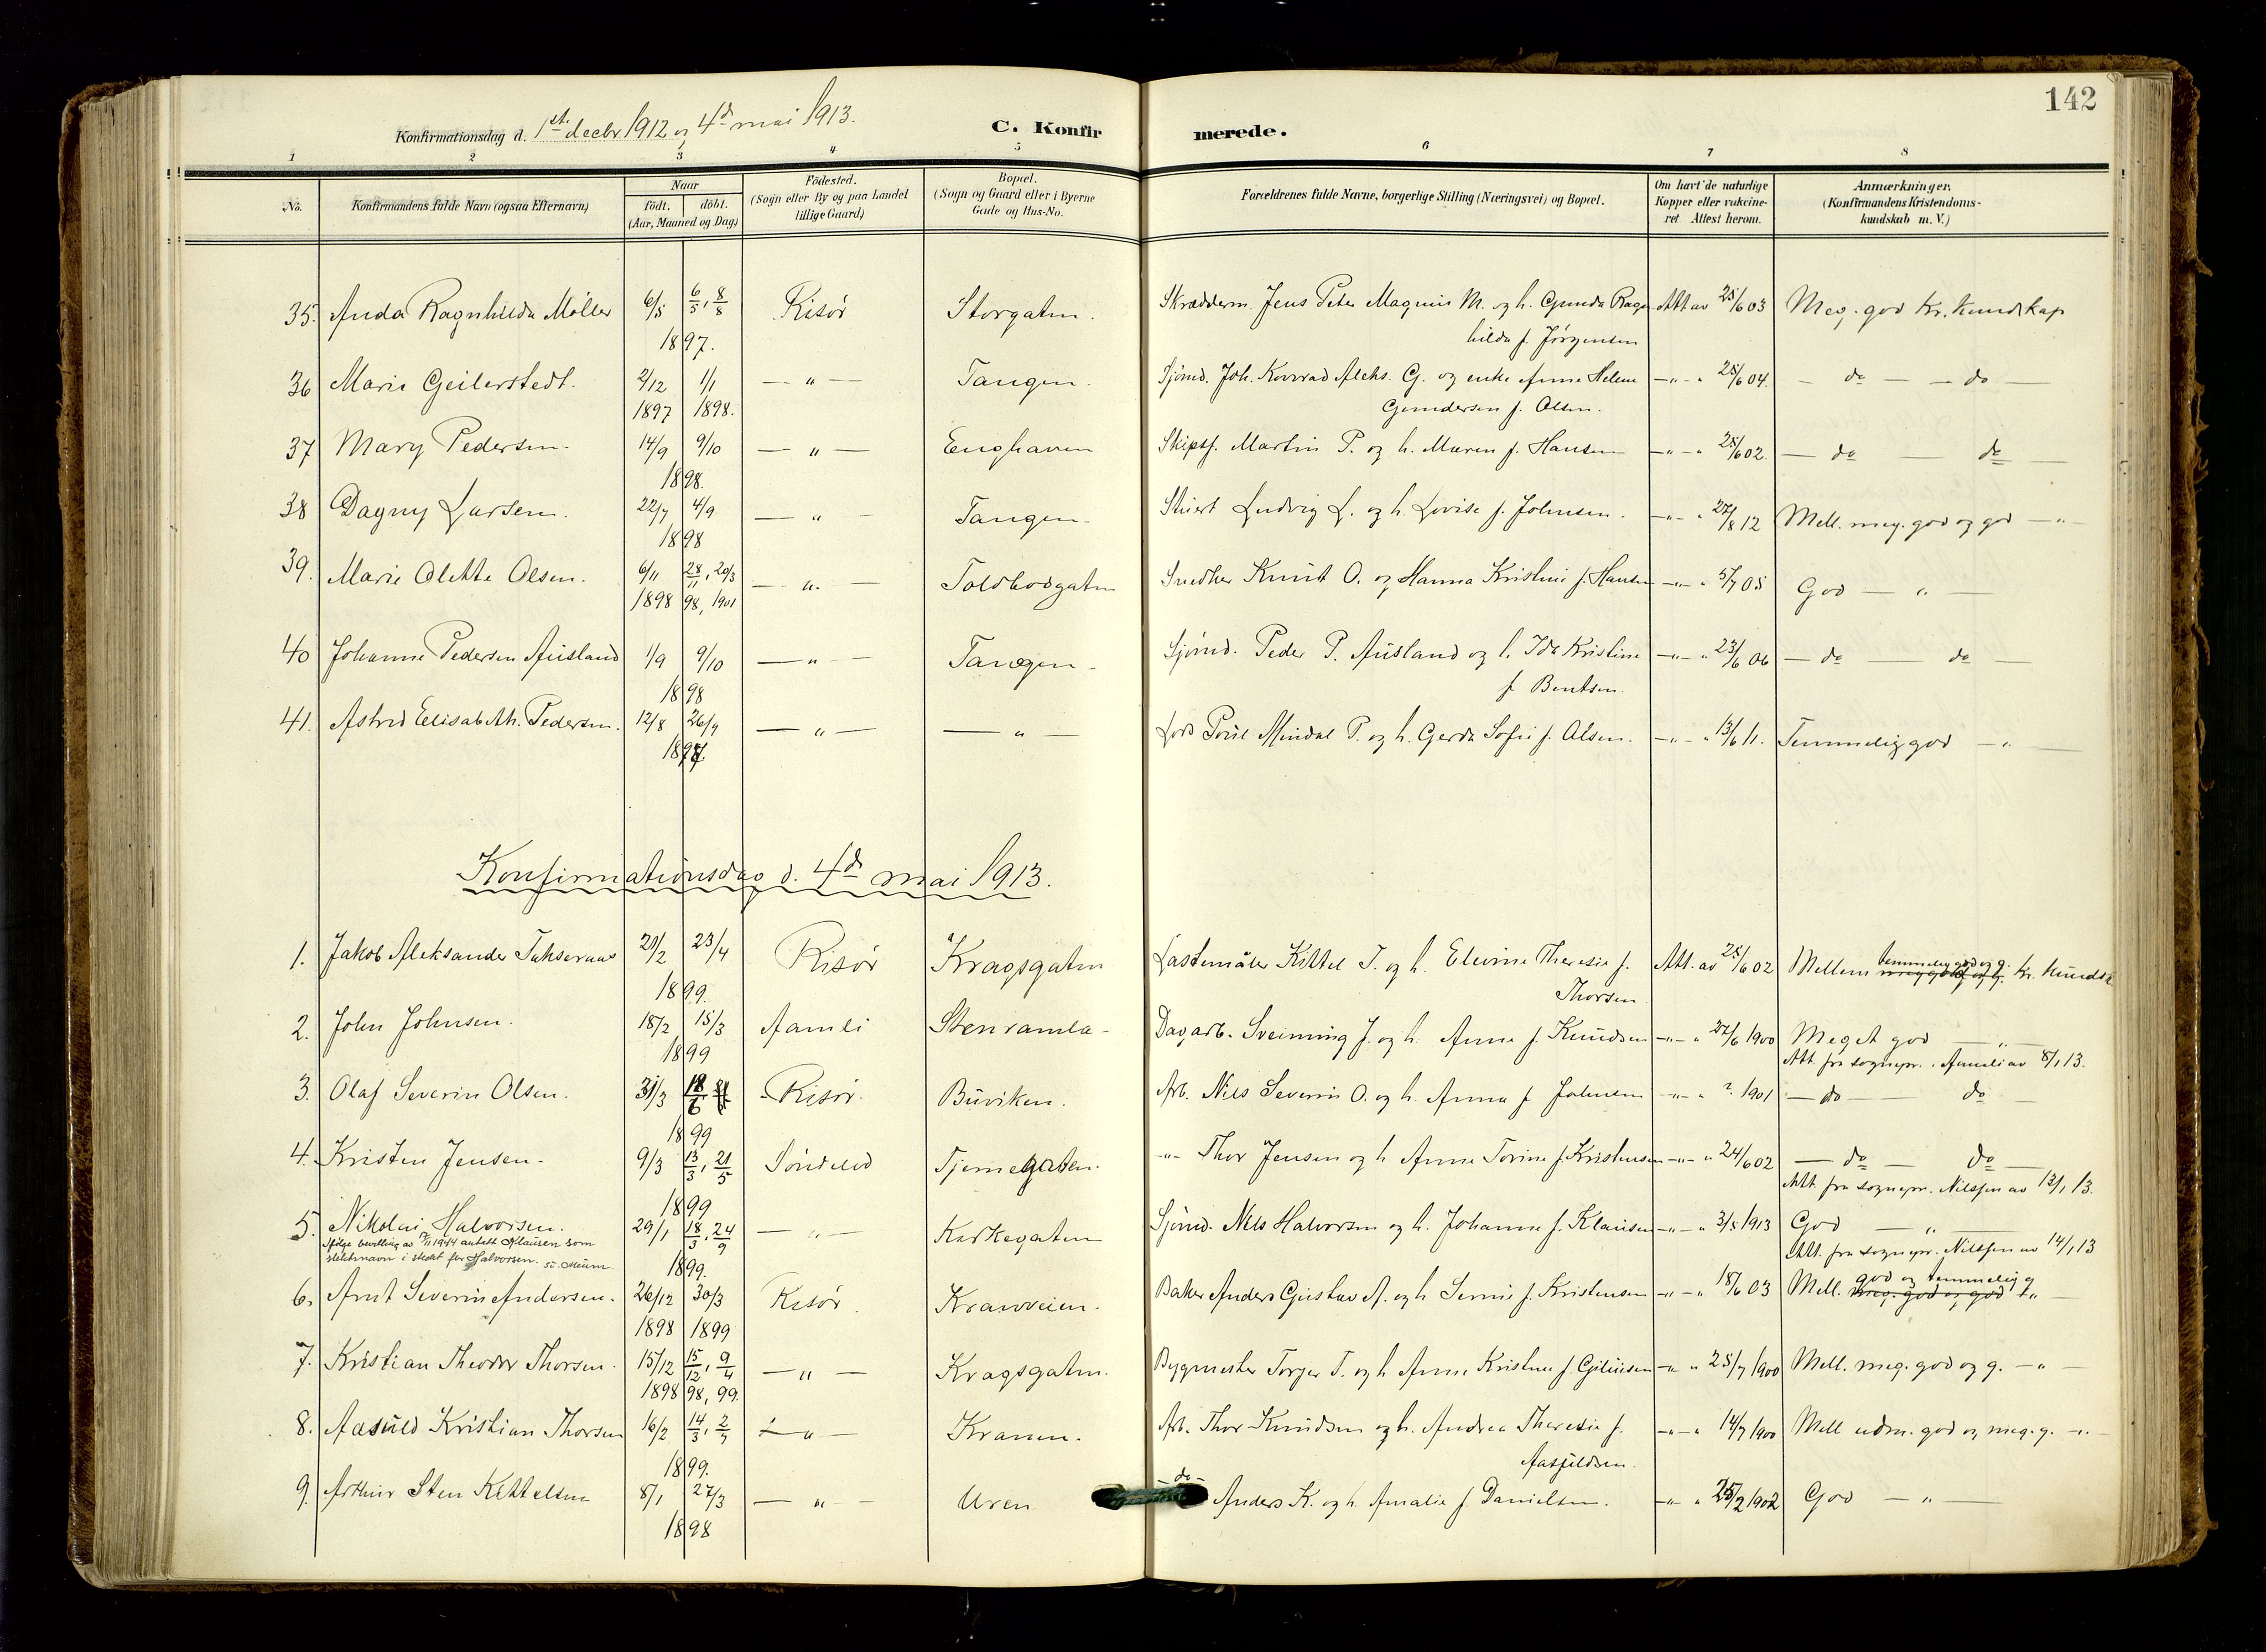 142
Konfirmationsdag d. 1ste decbr. 1912 og 4de mai 1913.
C. Konfirmerede.
1 2 3 4 5 6 7 8
No.
Konfirmandens fulde Navn (ogsaa Efternavn)
Naar
födt. döbt.
(Aar, Maaned og Dag)
Födested.
(Sogn eller By og paa Landet
tillige Gaard)
Bopæl.
(Sogn og Gaard eller i Byerne
Gade og Hus-No.
Forældrenes fulde Navne, borgerlige Stilling (Næringsvei) og Bopæl.
Om havt de naturlige
Kopper eller vakcine-
ret Attest herom.
Anmærkninger.
(Konfirmandens Kristendoms-
kundskab m. V.)
35. Anda Ragnhilda Möller 6/5 6/5, 8/8 Risör Storgaten. Skrædderm. Jens Peter Magnus M. og h. Gunda Ragn Att av 25/6 03 Meg. god kr. kundskap
1897. hilda f. Jörgensen
36 Marie Geilerstedt. 2/12 1/1 — " — Tangen. Sjömd. Joh. Konrad Aleks. G. og enke Anne Helene —"— " 25/6 04. — do — — do —
1897 1898. Gundersen f. Olsen.
37 Mary Pedersen. 14/9 9/10 — " — Enghaven Skipsf. Martin P. og h. Maren f. Hansen —"— " 25/6 02. — do — do —
1898.
38 Dagny Larsen. 22/7 4/9 — " — Tangen. Stuert Ludvig L. og h. Lovise f. Johnsen. —"— " 27/8 12 Mell. meg. god og god —"—
1898
39. Marie Olette Olsen. 6/11 28/11, 20/3 — " — Toldbodgaten Snedker Knut O. og Hanna Kristine f. Hansen —"— " 5/7 05 God — " —
1898 98, 1901
40 Johanne Pedersen Ausland 1/9 9/10 — " — Tangen. Sjömd. Peder P. Ausland og h. Ida Kristine —"— " 23/6 06 — do — do —
1898 f. Bentsen.
41. Astrid Elisabeth. Pedersen. 12/8 26/9 — " — — " — Lods Poul Mindal P. og h. Gerda Sofie f. Olsen. —"— " 13/6 11. Temmelig god —"—
1897
Konfirmationsdag d. 4de mai 1913.
1. Jakob Aleksander 21/2 23/4 Risör Kragsgaten Lastemåler Kittel T. og h. Elevine Theresie f. Att. av 25/6 02 Mellem temmelig god og g. kr. kundsk
1899. Thorsen
2. John Johnsen. 18/2 15/3 Aamli Stenramla Dagarb. Sveinung J. og h. Anne f. Knudsen —"— " 27/6 1900 Meget god — " —
1899 Att. fra sognepr. i Aamli av 8/1 13.
3. Olaf Severin Olsen. 31/3 18/6 Risör. Buviken. Arb. Nils Severin O. og h. Anna f. Johnsen —"— " ? 1901 — do — do —
1899
4. Kristen Jensen. 9/3 13/3, 21/5 Söndeled Tjernegaten. —"— Thor Jensen og h. Anne Torine f. Kristensen —"— " 24/6 02 — do — do —
1899 Att. fra sognepr. Nilssen av 13/1 13.
5. Nikolai Halvorsen. 29/1 18/3, 24/9 — " — Kirkegaten Sjömd. Nils Halvorsen og h. Johanne f. Klausen —"— " 3/5 1913 God — " —
Ifölge bevilling av /11 1944 antatt Klausen som
slektsnavn i stedet for Halvorsen. 1899. Att. fra sognepr. Nilssen av 14/1 13
6. Arnt Severin Andersen. 26/12 30/3 Risör. Kranveien. Baker Anders Gustav A. og h. Serine f. Kristensen —"— " 18/6 03 Mell. god og temmelig g. —"—
1898 1899
7. Kristian Theodor Thorsen. 15/12 15/12, 9/4 — " — Kragsgaten. Bygmester Torger T. og h. Anne Kristine f. Gjeruldsen —"— " 25/7 1900 Mell. meg. god og g. —"—
1898 98, 99.
8. Aasuld Kristian Thorsen 16/2 14/3, 2/7 — " — Kranen. Arb. Thor Knudsen og h. Andrea Theresie f. —"— " 14/7 1900 Mell udm. god og meg. g. —"—
1899. Aasuldsen.
9. Arthur Sten Kittelsen 8/1 27/3 — " — Uren —do— Anders K. og h. Amalie f. Danielsen. —"— " 25/2 1902 God — " —
1898